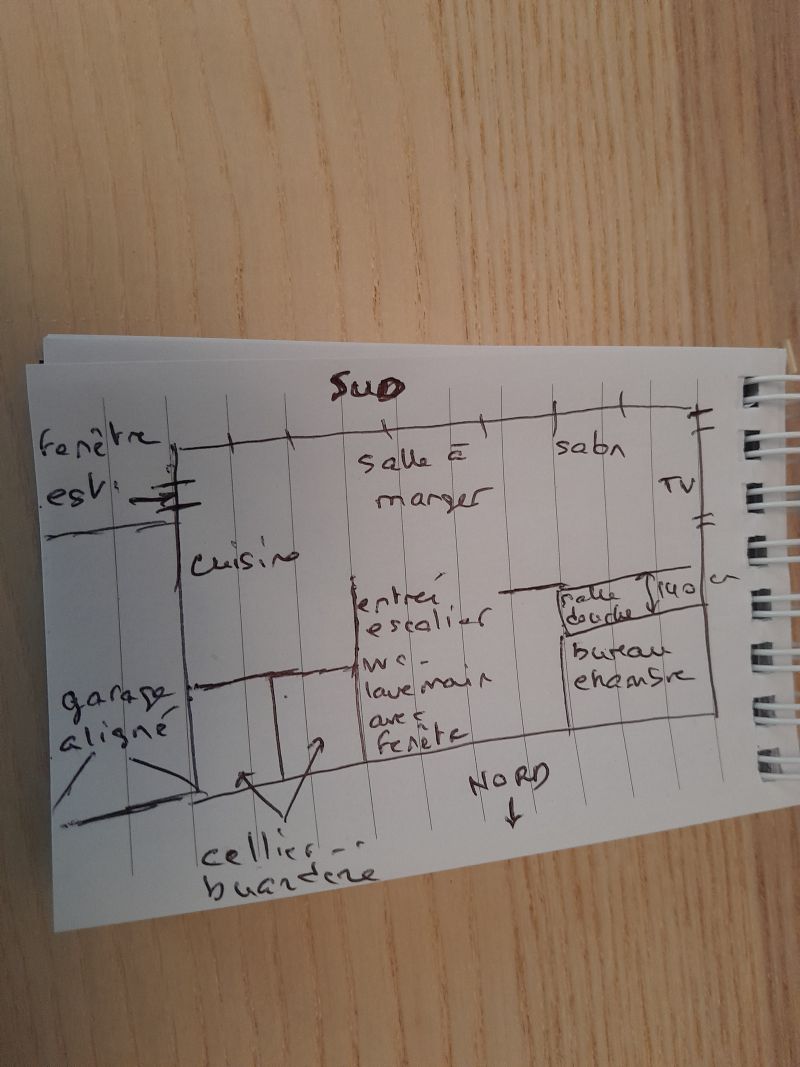 SUD
fenêtre
est.
salle à
manger
salon
TV
cuisine
entrée
escalier
salle
douche
140 c
WC -
lave main
avec
fenêtre
bureau
chambre
garage
aligné
NORD
cellier --
buanderie